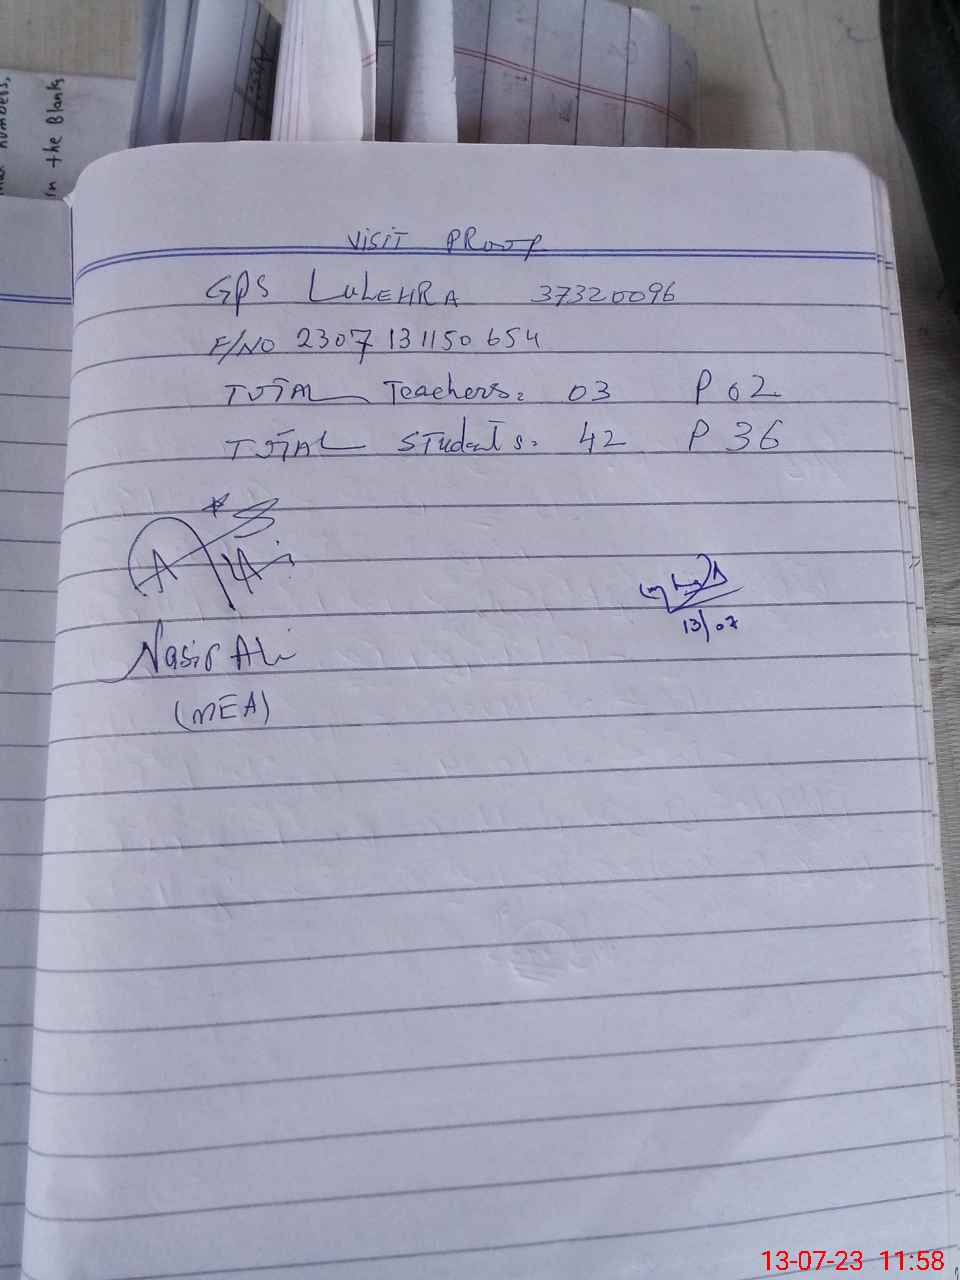 in the Blanks
VISIT PROOF
GPS LULEHRA 37320096
F/NO 2307131150654
TOTAL Teachers: 03 P 02
TOTAL Students: 42 P 36
13/07
Nasir Ali
(MEA)
13-07-23 11:58